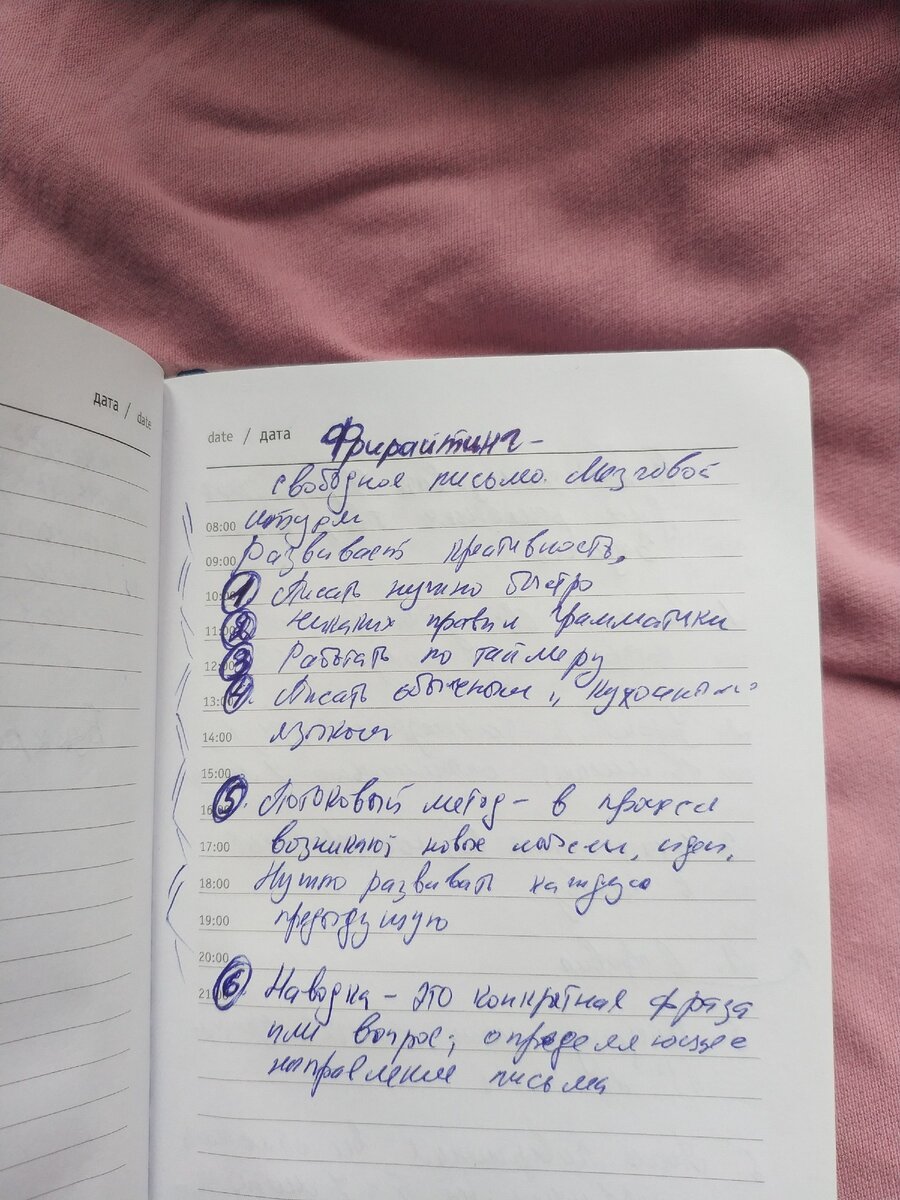 дата / date
date / дата Фрирайтинг -
свободное письмо. Мозговой
08:00 штурм
09:00 развивает креативность.
10:00 1. Писать нужно быстро
11:00 2. никаких правил грамматики
12:00 3 Работать по таймеру
13:00 4. Писать обычным, "кухонным"
14:00 языком
15:00
16:00 5. Потоковый метод - в процессе
17:00 возникают новые идеи.
18:00 Нужно развивать каждую
19:00 предыдущую
20:00
21:00 6 Наводка - это конкретная фраза
или вопрос, определяющее
направление письма